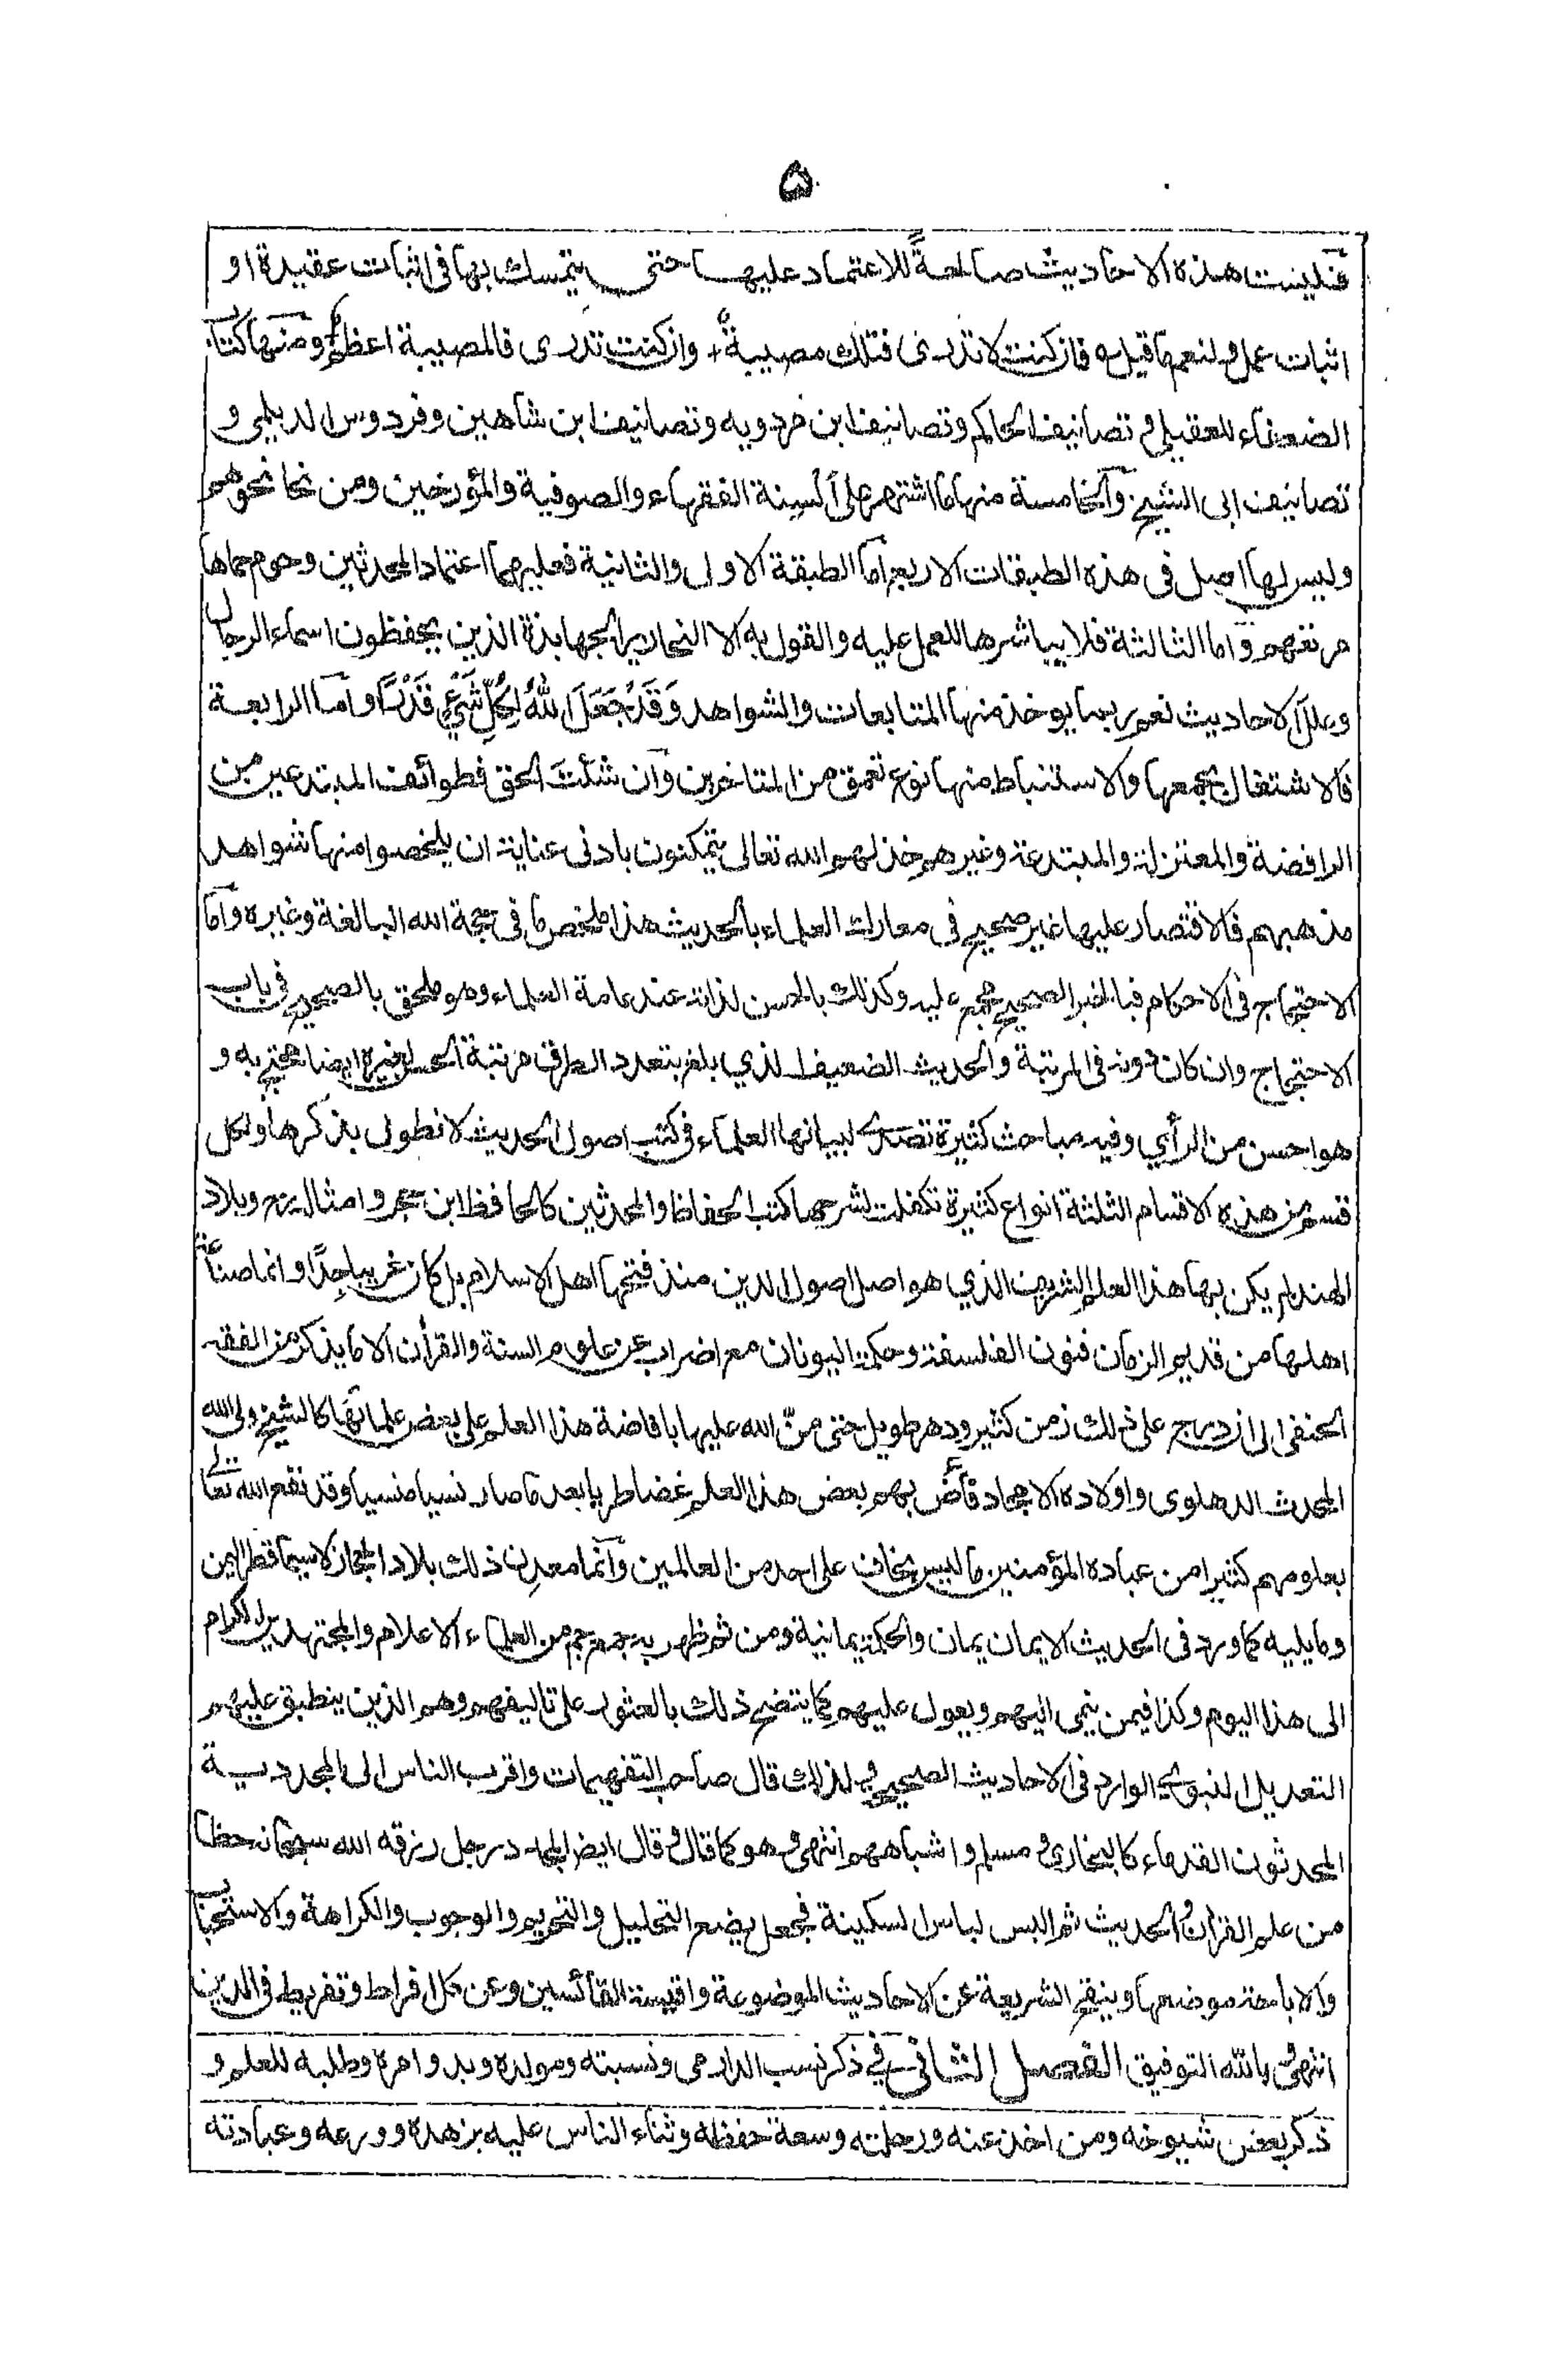 ۵
فليست هذه الاحاديث صالحةً للاعتماد عليها حتى يتمسك بها فى اثبات عقيدة او
اثبات عمل و لنعم ما قيل ـه فان كنت لا تدرى فتلك مصيبةٌ + وان كنت تدرى فالمصيبة اعظمُ ومنها كتاب
الضعفاء للعقيلى و تصانيف الحاكم وتصانيف ابن مردويه وتصانيف ابن شاهين وفردوس الديلمى و
تصانيف ابى الشيخ والخامسة منها ما اشتهر على ألسِنة الفقهاء والصوفية والمؤرخين ومن نحا نحوهم
وليس لها اصل فى هذه الطبقات الاربع اما الطبقة الاولى والثانية فعليهما اعتماد المحدثين وحوم حماها
مرتعهم واما الثالثة فلا يباشرها للعمل عليه والقول به الا النحارير الجهابذة الذين يحفظون اسماء الرجال
وعلل الاحاديث نعم ربما يوخذ منها المتابعات والشواهد وَقَدْ جَعَلَ اللهُ لِكُلِّ شَيْءٍ قَدْرًا واما الرابعة
فالاشتغال بجمعها والاستنباط منها نوع تعمق من المتاخرين وان شئتَ الحق فطوائف المبتدعين من
الرافضة والمعتزلة والمبتدعة وغيرهم خذلهم الله تعالى يتمكنون بادنى عناية ان يلخصوا منها شواهد
مذهبهم فالاقتصار عليها غير صحيح فى معارك العلماء بالحديث هذا ملخص ما فى حجة الله البالغة وغيره واما
الاحتجاج فى الاحكام فبالخبر الصحيح مجمع عليه وكذلك بالحسن لذاته عند عامة العلماء وهو ملحق بالصحيح فى باب
الاحتجاج وان كان دونه فى المرتبة والحديث الضعيف الذي بلغ بتعدد الطرق مرتبة الحسن لغيره ايضا محتج به و
هو احسن من الرأي وفيه مباحث كثيرة تصدى لبيانها العلماء فى كتب اصول الحديث لا نطول بذكرها ولكل
قسم من هذه الاقسام الثلثة انواع كثيرة تكفلت لشرحها كتب الحفاظ والمحدثين كالحافظ ابن حجر وامثاله وبلاد
الهند لم يكن بها هذا العلم الشريف الذي هو اصل اصول الدين منذ فتحها اهل الاسلام بل كان غريبا جِدًّا وانما صناعة
اهلها من قديم الزمان فنون الفلسفة وحكمة اليونان مع اضراب عن علوم السنة والقرأن الا ما يذكر من الفقه
الحنفى الى ان درج على ذلك زمن كثير ودهر طويل حتى منّ الله عليها بافاضة هذا العلم على بعض علمائها كالشيخ ولى الله
المحدث الدهلوى واولاده الامجاد فأضّ بهم بعض هذا العلم غضا طريا بعد ما صار نسيا منسيا وقد نفع الله تعالى
بعلومهم كثيرا من عباده المؤمنين ما ليس بخاف على احد من العالمين وانما معدن ذلك بلاد الحجاز لا سيما قطر اليمن
وما يليه كما ورد فى الحديث الايمان يمان والحكمة يمانية ومن ثم ظهر به جمع جم من العلماء الاعلام والمجتهدين الكرام
الى هذا اليوم وكذا فيمن ينمى اليهم ويعول عليهم كما يتضح ذلك بالعثور على تاليفهم وهم الذين ينطبق عليهم
التعديل النبوى الوارد فى الاحاديث الصحيحة ولذلك قال صاحب التفهيمات واقرب الناس الى المجددية
المحدثون القدماء كالبخارى و مسلم واشباههم انتهى وهو كما قال وقال ايضا المجدد رجل رزقه الله سبحانه حظا
من علم القرأن والحديث ثم البس لباس السكينة فجعل يضع التحليل والتحريم والوجوب والكراهة والاستحباب
والاباحة موضعها وينقح الشريعة عن الاحاديث الموضوعة واقيسة القائسين وعن كل افراط وتفريط فى الدين
انتهى وبالله التوفيق الفصل الثانى فى ذكر نسب الدارمى ونسبته ومولده وبدو امره وطلبه للعلم و
ذكر بعض شيوخه ومن اخذ عنه ورحلته وسعة حفظه وثناء الناس عليه بزهده وورعه وعبادته